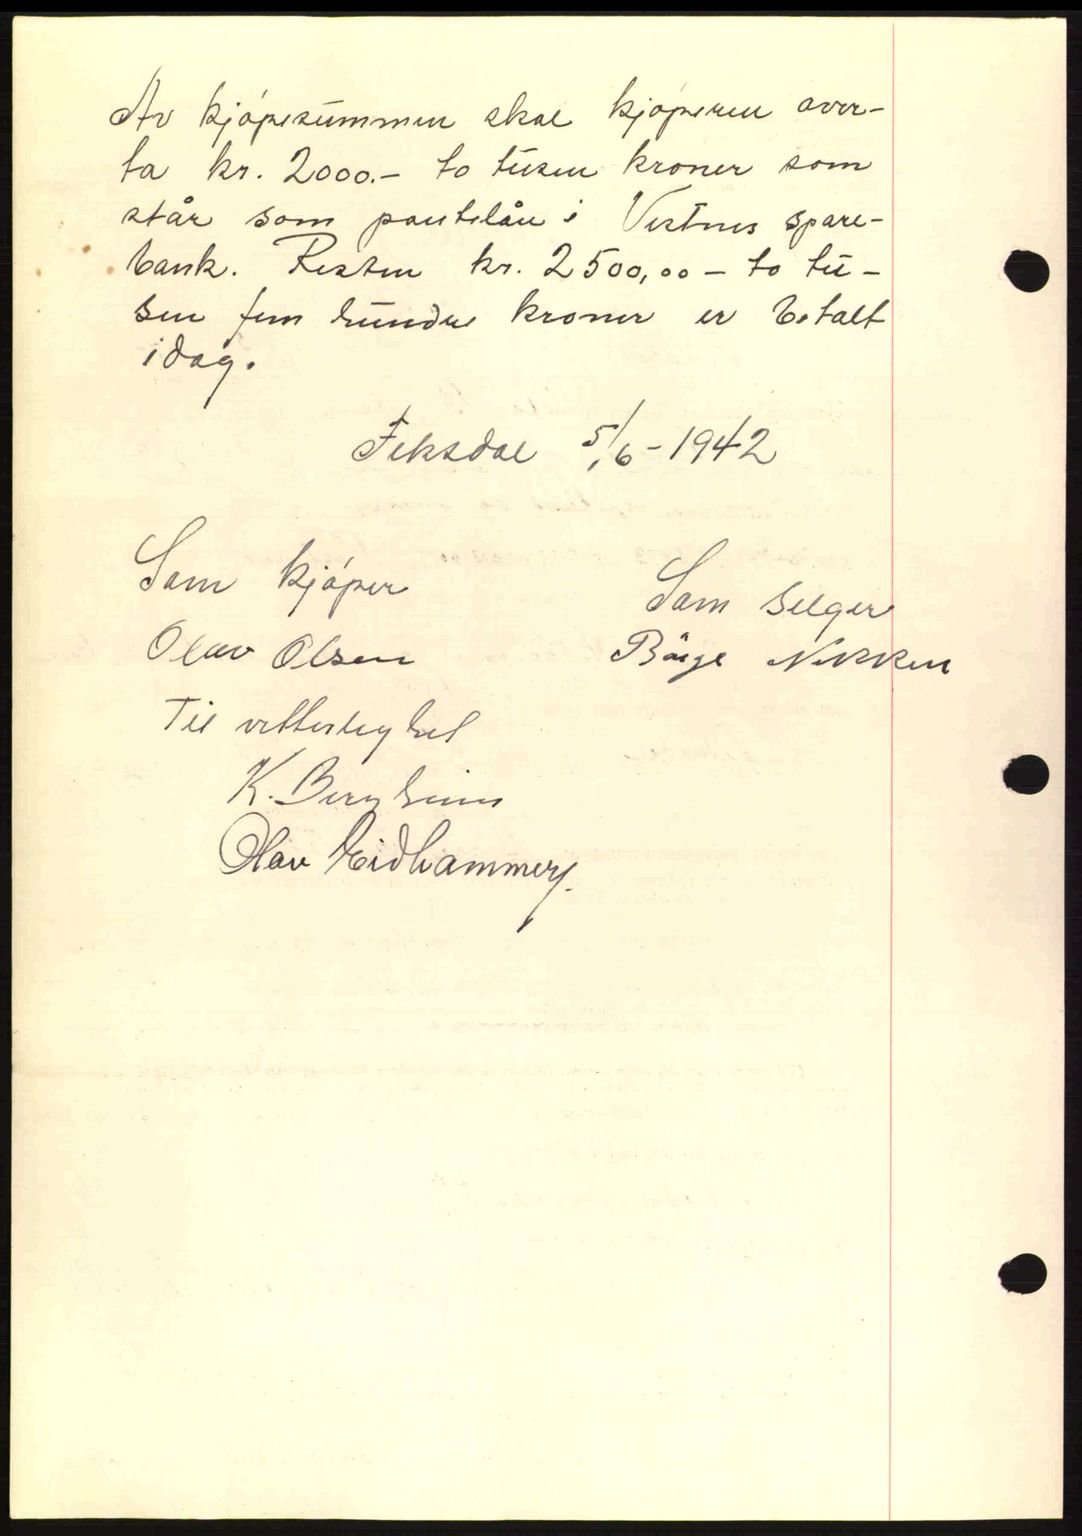 Av kjøpesummen skal kjøperen over-
ta kr. 2000.- to tusen kroner som
står som pantelån i Vestnes spare-
bank. Resten kr. 2500,00 - to tu-
sen fem hundre kroner er betalt
idag.
Fiksdal 5/6-1942
Som kjøper
Som selger
Olav Olsen
Børge Nekken
Til vitterlighet
K. Bergheim
Olav Eidhammer.